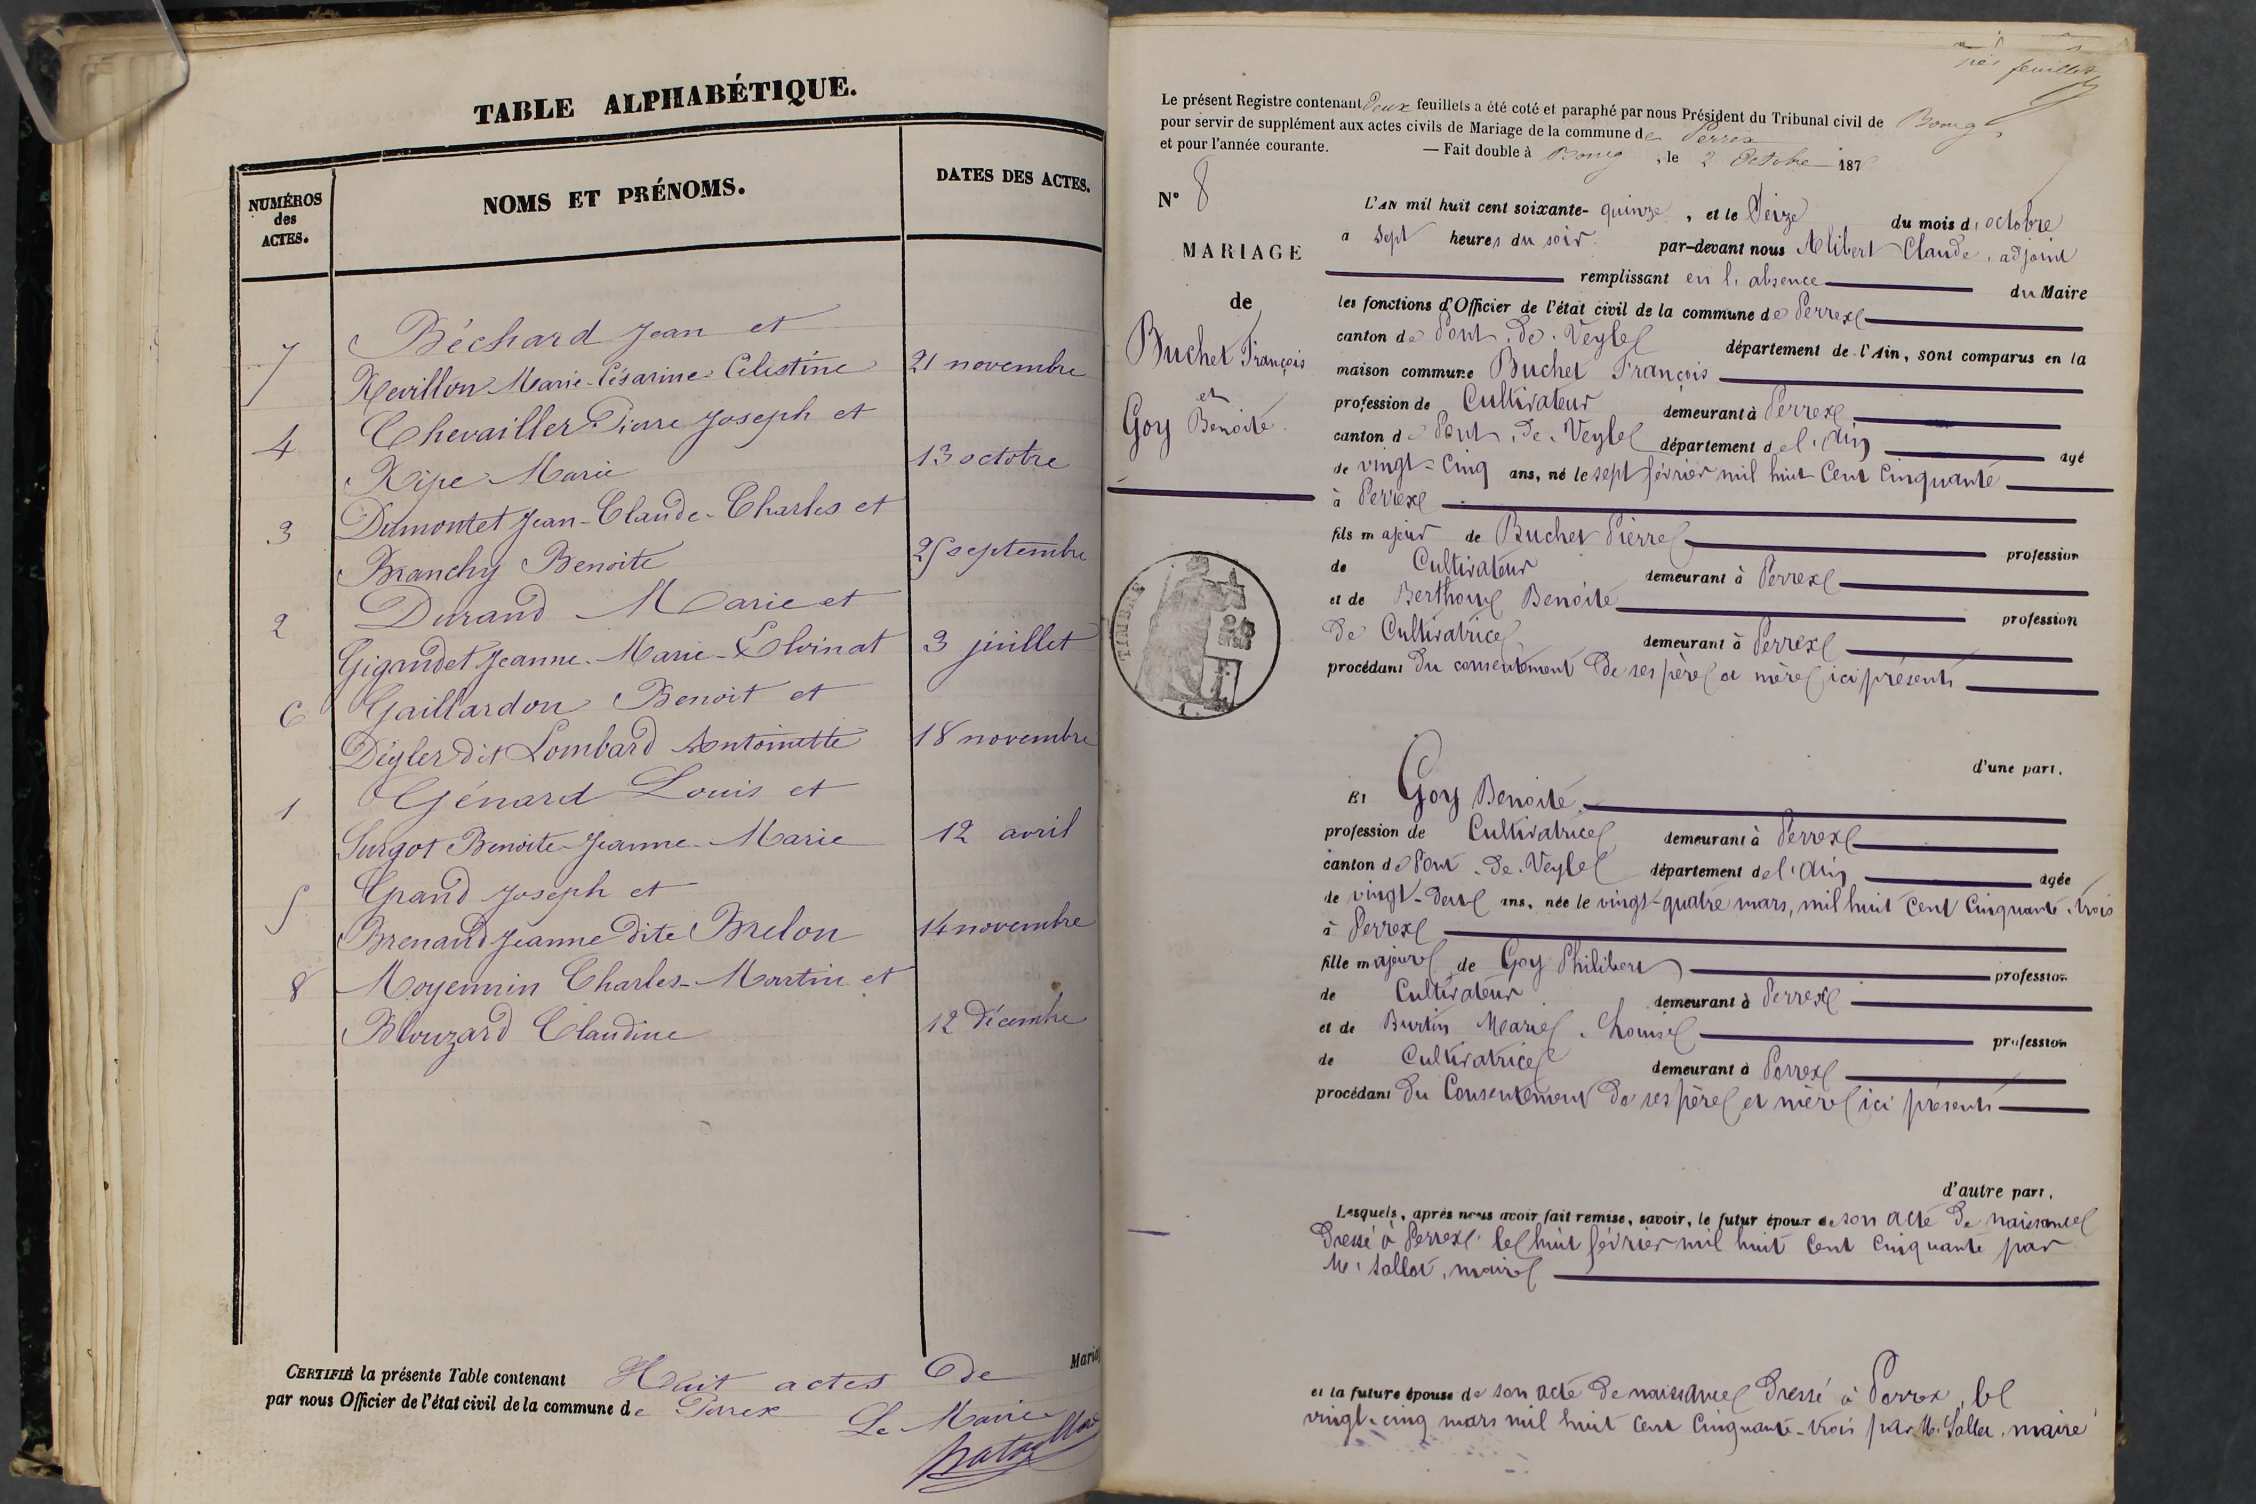 TABLE ALPHABÉTIQUE.
NUMÉROS
des
ACTES.
NOMS ET PRÉNOMS.
DATES DES ACTES.
7 Béchard Jean et
Revillon Marie-Césarine Célestine 21 novembre
4 Chevailler Pierre Joseph et
Ripe Marie 13 octobre
3 Dumontet Jean-Claude-Charles et
Branchy Benoite 25 septembre
2 Durand Marie et
Gigandet Jeanne-Marie- 3 juillet
6 Gaillardon Benoit et
Dégler dit Lombard Antoinette 18 novembre
1 Génard Louis et
Surgot Benoite-Jeanne-Marie 12 avril
5 Grand Joseph et
Brenand Jeanne dite Brelon 14 novembre
8 Moyennin Charles-Martin et
Blouzard Claudine 12 Décembre
CERTIFIÉ la présente Table contenant Huit actes de Maria
par nous Officier de l'état civil de la commune de Perrex Le Maire
feuillet
Le présent Registre contenant Deux feuillets a été coté et paraphé par nous Président du Tribunal civil de Bourg
pour servir de supplément aux actes civils de Mariage de la commune de Perrex
et pour l'année courante. — Fait double à Bourg, le 2 Octobre 187
N° 8
MARIAGE
de
Buchet François
et
Goy Benoite
TIMBRE
L'AN mil huit cent soixante-quinze, et le Seize du mois d'octobre
a sept heures du soir par-devant nous Alibert Claude, adjoint
remplissant en l'absence du Maire
les fonctions d'Officier de l'état civil de la commune de Perrex
canton de Pont-de-Veyle département de l'Ain, sont comparus en la
maison commune Buchet François
profession de Cultivateur demeurant à Perrex
canton de Pont-de-Veyle département de l'Ain agé
de vingt-cinq ans, né le sept février mil huit cent cinquante
à Perrex
fils majeur de Buchet Pierre profession
de Cultivateur demeurant à Perrex
et de Berthoux Benoite profession
de Cultivatrice demeurant à Perrex
procédant du consentement de ses père et mère ici présents
d'une part.
Et Goy Benoite
profession de Cultivatrice demeurant à Perrex
canton de Pont-de-Veyle département de l'Ain agée
de vingt-deux ans, née le vingt-quatre mars, mil huit cent cinquante-trois
à Perrex
fille majeure de Goy Philibert profession
de Cultivateur demeurant à Perrex
et de Burtin Marie-Louise profession
de Cultivatrice demeurant à Perrex
procédant du Consentement de ses père et mère ici présents
d'autre part.
Lesquels, après nous avoir fait remise, savoir, le futur époux de son acte de naissance
Dressé à Perrex le huit février mil huit cent cinquante par
M. Sallet, maire
et la future épouse de son acte de naissance Dressé à Perrex, le
vingt-cinq mars mil huit cent cinquante-trois par M. Sallet, maire